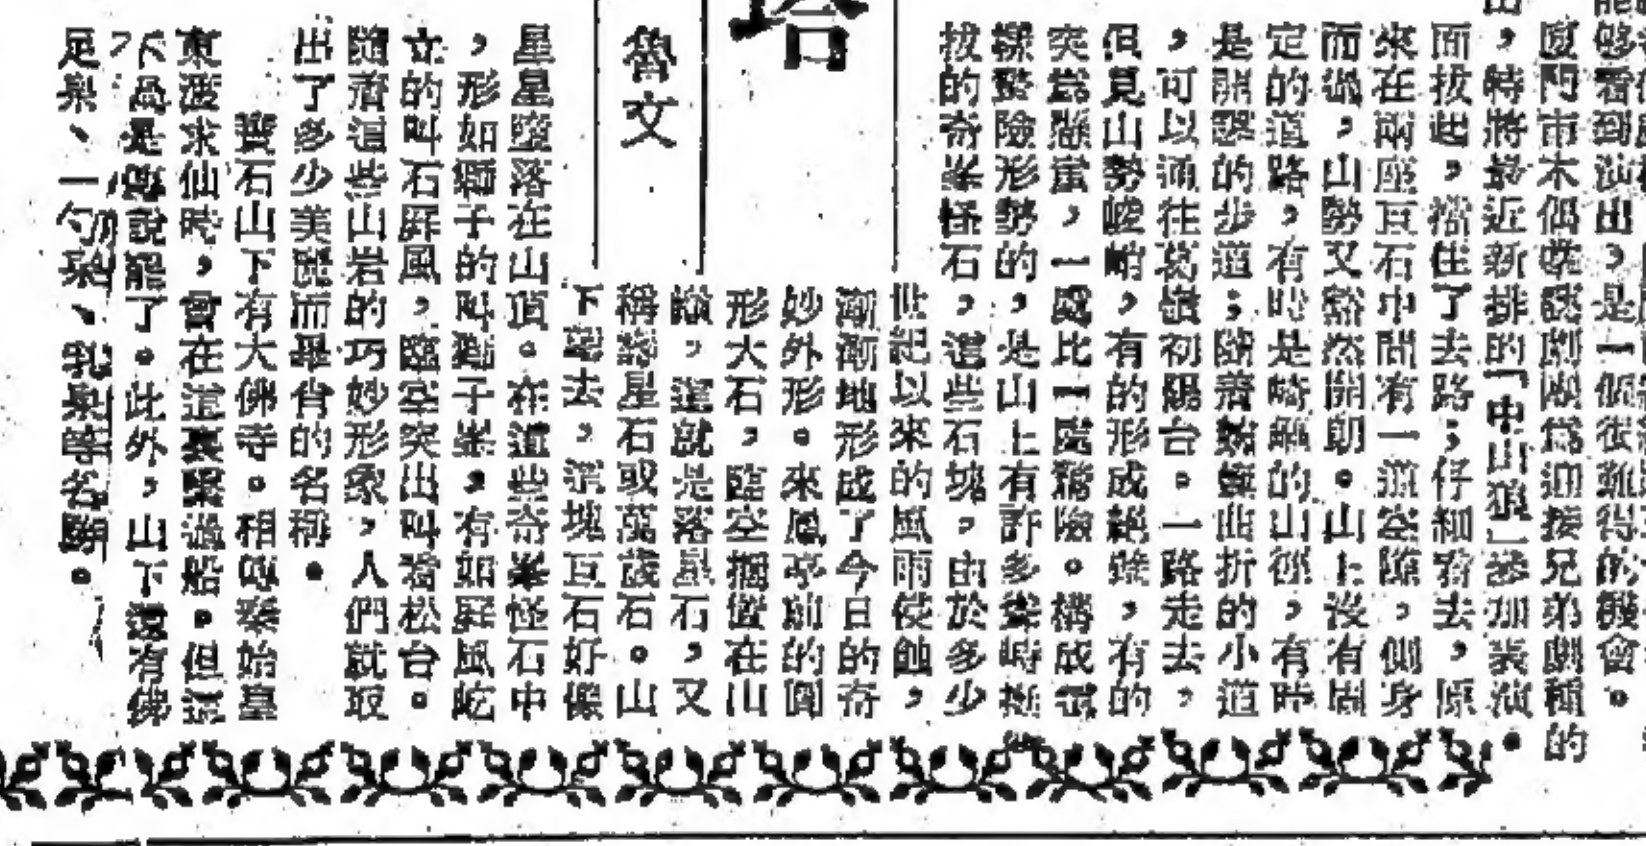 能够看到演出,是一個很難得的機會。
廈門市木偶藝術劇團爲迎接兄弟劇種的
,特將最近新排的「中山狼」參加表演。
面拔起,擋住了去路;仔細看去,原
來在兩座互石中間有一道空隙,側身
而過,山勢又豁然開朗。山上沒有固
定的道路,有時是崎嶇的山徑,有時
是開鑿的步道;隨着蜿蜒曲折的小道
,可以通往葛嶺初陽台。一路走去,
但見山勢峻峭,有的形成絕壁,有的
突爲懸崖,一處比一處驚險。構成
險形勢的,是山上有許多聳峙挺
拔的奇峯怪石,這些石塊,由於多少
世記以來的風雨侵蝕,
漸漸地形成了今日的奇
妙外形。來鳳亭前的圓
形大石,臨空擱置在山
巔,這就是落星石,又
稱壽星石或萬歲石。山
下望去,這塊互石好像
星星墮落在山頂。在這些奇峯怪石中
,形如獅子的叫獅子峯,有如屏風屹
立的叫石屏風,臨空突出叫着松台。
隨着這些山岩的巧妙形象,人們就取
出了多少美麗而畢肖的名稱。
寶石山下有大佛寺。相傳秦始皇
東渡求仙時,會在這裏繫過船。但這
不過是傳說罷了。此外,山下還有佛
足泉、一勺泉、乳泉等名勝。
塔
魯文